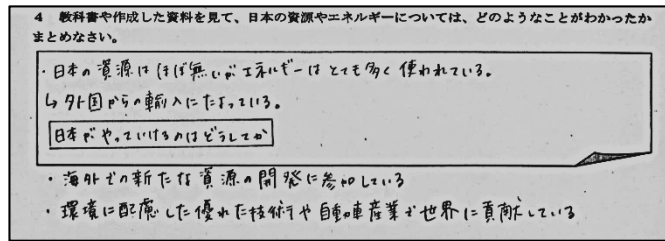 4 教科書や作成した資料を見て、日本の資源やエネルギーについては、どのようなことがわかったか
まとめなさい。
・日本の資源はほぼ無いがエネルギーはとても多く使われている。
↳外国からの輸入にたよっている。
日本がやっていけるのはどうしてか
・海外での新たな資源の開発に参加している
・環境に配慮した優れた技術や自動車産業で世界に貢献している